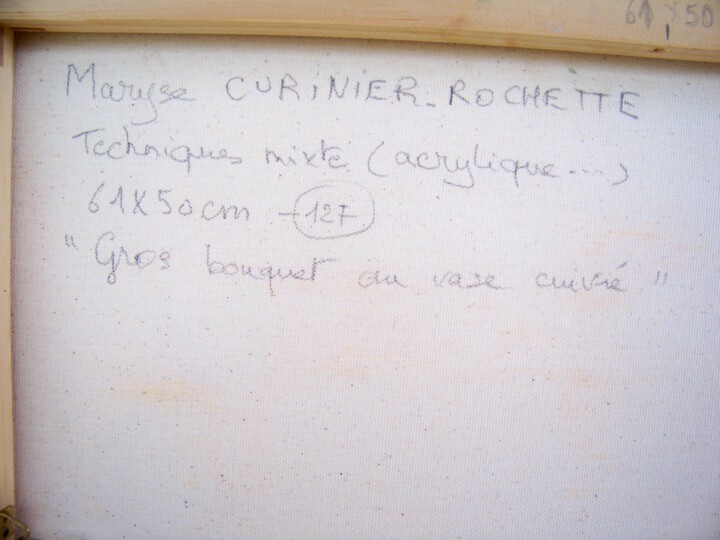 61 x 50
Maryse CURINIER-ROCHETTE
Techniques mixte (acrylique...)
61X50cm - 12F
" Gros bouquet au vase cuivré "